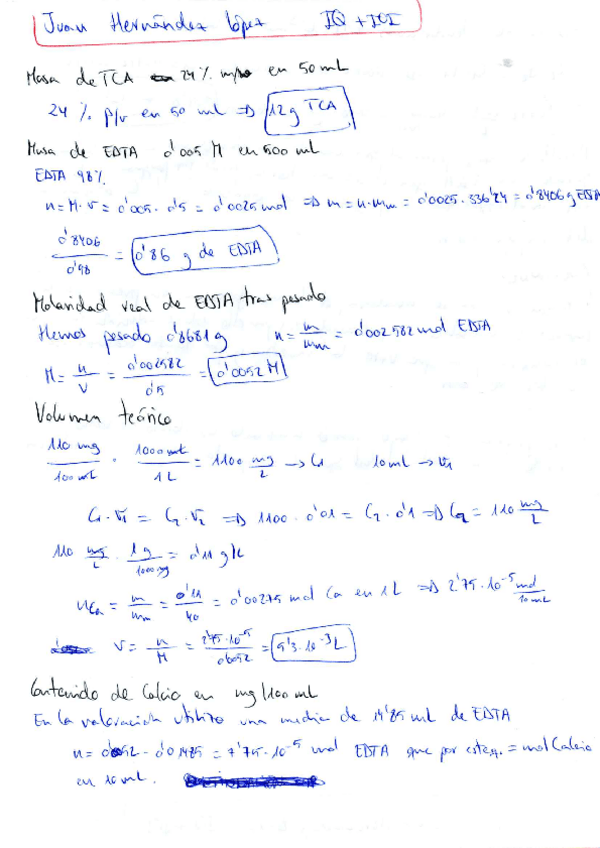 Juan Hernández López IQ + IOI
Masa de TCA 24% m/v en 50 mL
24 % p/v en 50 ml => 12g TCA
Masa de EDTA 0'005 M en 500 ml
EDTA 98%
n = M · V = 0'005 · 0'5 = 0'0025 mol => m = n · mm = 0'0025 · 336'24 = 0'8406 g EDTA
0'8406 / 0'98 = 0'86 g de EDTA
Molaridad real de EDTA tras pesado
Hemos pesado 0'8681 g n = m / mm = 0'002582 mol EDTA
M = n / V = 0'002582 / 0'5 = 0'0052 M
Volumen teórico
110 mg / 100 mL · 1000 mL / 1 L = 1100 mg / L → C1 10 ml → V1
C1 · V1 = C2 · V2 => 1100 · 0'01 = C2 · 0'1 => C2 = 110 mg / L
110 mg / L · 1 g / 1000 mg = 0'11 g/L
nCa = m / mm = 0'11 / 40 = 0'00275 mol Ca en 1 L => 2'75 · 10⁻⁵ mol / 10 mL
V = n / M = 2'75 · 10⁻⁵ / 0'0052 = 5'3 · 10⁻³ L
Contenido de Calcio en mg/100 ml
En la valoración utilizo una media de 14'85 ml de EDTA
n = 0'0052 · 0'01485 = 7'75 · 10⁻⁵ mol EDTA que por esteq. = mol Calcio
en 10 ml.